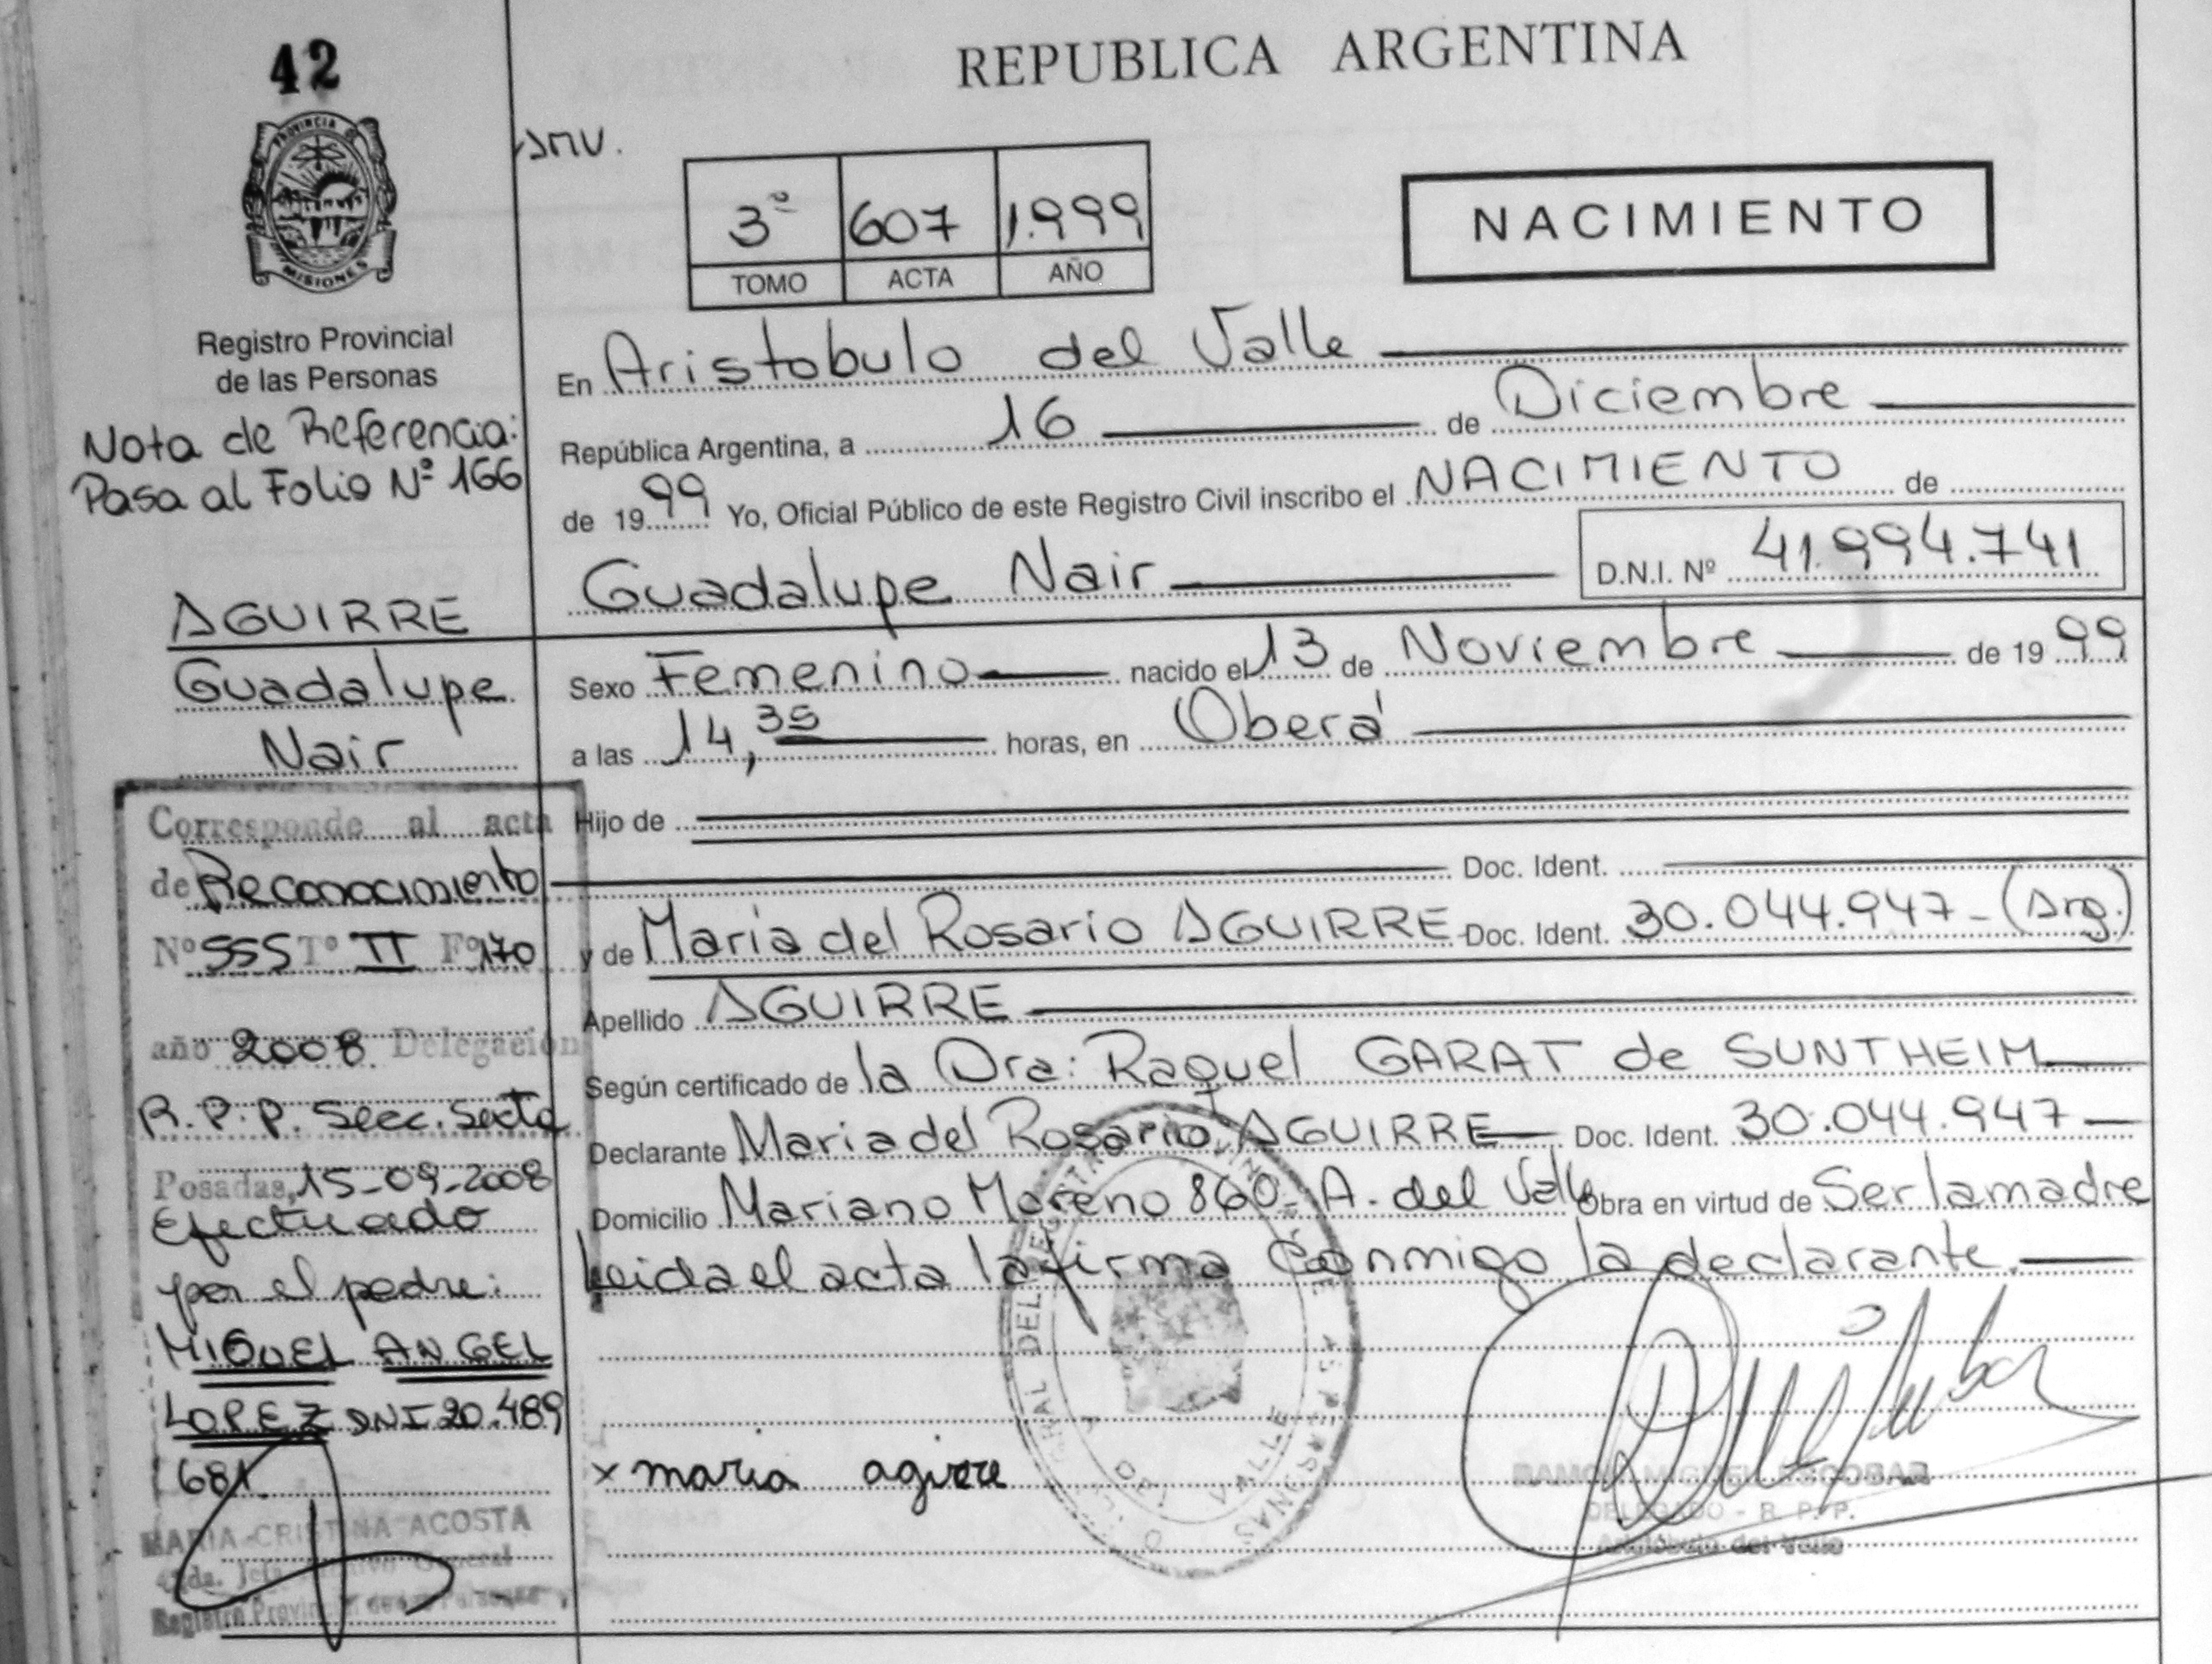 42
REPUBLICA ARGENTINA
PROVINCIA DE
MISIONES
3º 607 1.999
TOMO ACTA AÑO
NACIMIENTO
Registro Provincial
de las Personas
Nota de Referencia:
Pasa al Folio Nº 166
AGUIRRE
Guadalupe
Nair
Corresponde al acta
de Reconocimiento
Nº 555 Tº II Fº 170
año 2008 Delegación
R.P.P. Secc. Sexta
Posadas, 15-09-2008
Efectuado
por el padre:
MIGUEL ANGEL
LOPEZ DNI 20.489
681.
MARIA CRISTINA ACOSTA
General
Registro Provincial de las Personas
En Aristobulo del Valle
República Argentina, a 16 de Diciembre
de 1999 Yo, Oficial Público de este Registro Civil inscribo el NACIMIENTO de
Guadalupe Nair D.N.I. Nº 41.994.741
Sexo Femenino nacido el 13 de Noviembre de 1999
a las 14,35 horas, en Oberá
Hijo de
Doc. Ident.
y de Maria del Rosario AGUIRRE Doc. Ident. 30.044.947- (Arg.)
Apellido AGUIRRE
Según certificado de la Dra: Raquel GARAT de SUNTHEIM
Declarante Maria del Rosario AGUIRRE Doc. Ident. 30.044.947
Domicilio Mariano Moreno 860- A. del Valle Obra en virtud de Ser la madre
Leida el acta la firma Conmigo la declarante.
x maria agirre
RAMON MIGUEL ESCOBAR
DELEGADO - R. P. P.
Aristóbulo del Valle